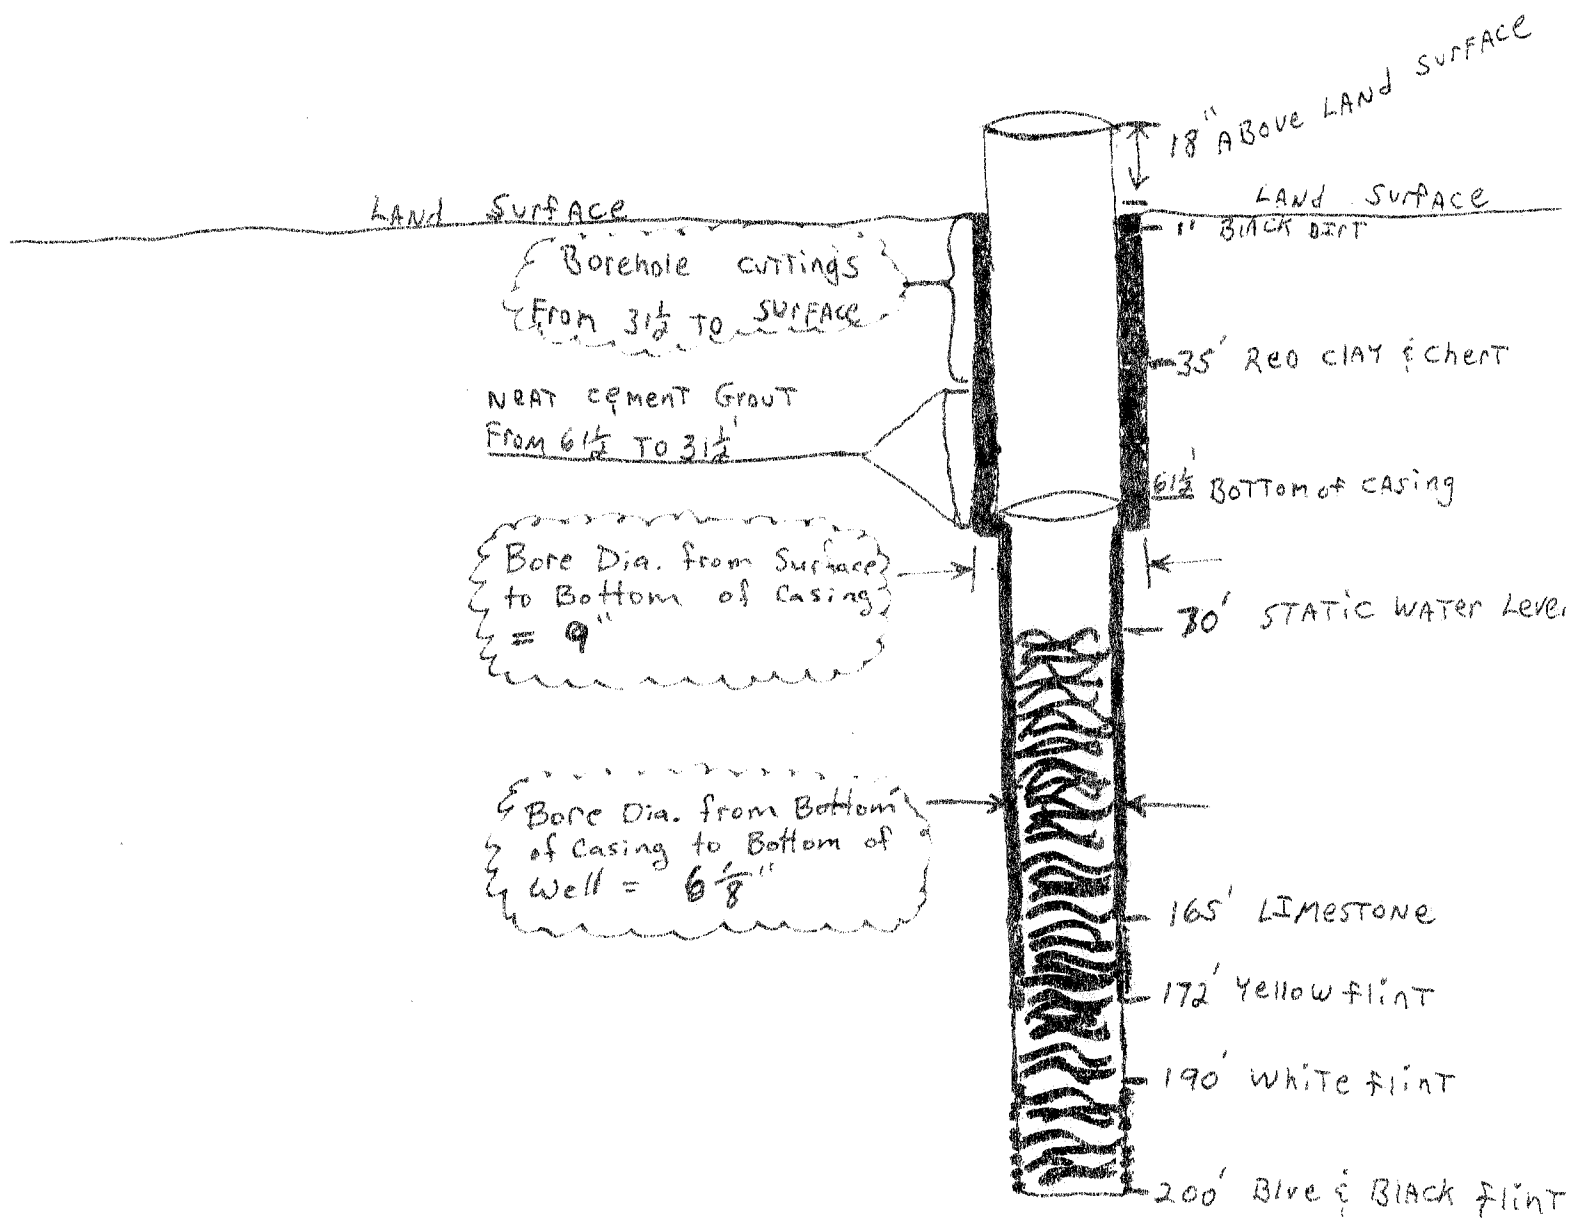 18" ABOVE LAND SURFACE
LAND SURFACE
LAND SURFACE
1' BLACK DIRT
Borehole cuttings
From 31½ TO SURFACE
35' Red CLAY & Chert
NEAT cement Grout
From 61½ TO 31½'
61½' BOTTOM of CAsing
Bore Dia. from Surface
to Bottom of Casing
= 9"
STATIC WATER Level
Bore Dia. from Bottom
of Casing to Bottom of
Well = 6 1/8"
165' LIMESTONE
172' Yellow flint
190' White flint
200' Blue & BlAck flint